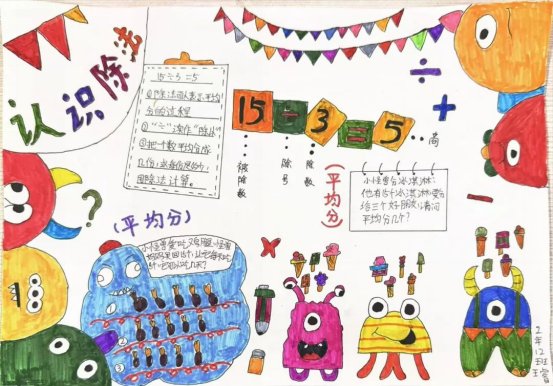 认识除法
15÷3=5
①除法可以表示平均
分的过程
②“÷”读作“除以”
③把一个数平均分成
几份,求每份是多少,
用除法计算。
15÷3=5
被除数
除号
除数
商
(平均分)
小怪兽分冰淇淋
他有15个冰淇淋,要分
给三个好朋友,请问
平均分几个?
(平均分)
小怪兽爱吃鸡腿,
?
÷
+
-
×
2年12班